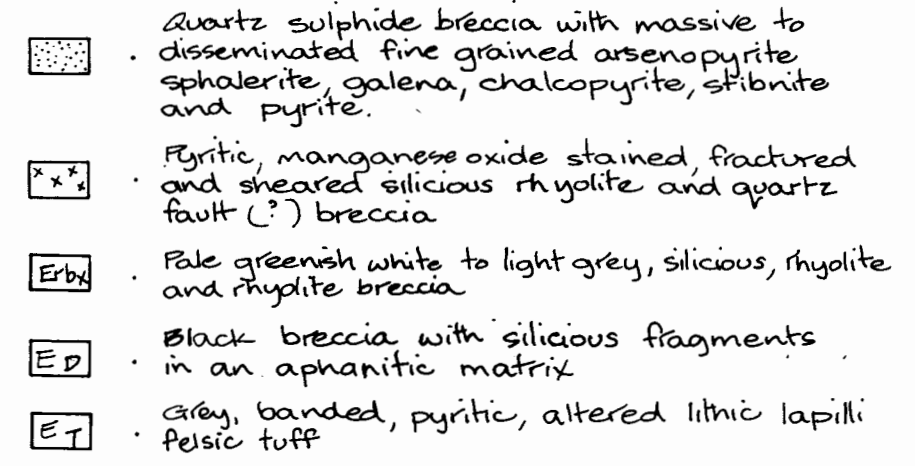 Quartz sulphide breccia with massive to
disseminated fine grained arsenopyrite
sphalerite, galena, chalcopyrite, stibnite
and pyrite.
Pyritic, manganese oxide stained, fractured
and sheared silicious rhyolite and quartz
fault (?) breccia
Erbx Pale greenish white to light grey, silicious, rhyolite
and rhyolite breccia
ED Black breccia with silicious fragments
in an aphanitic matrix
ET Grey, banded, pyritic, altered lithic lapilli
felsic tuff